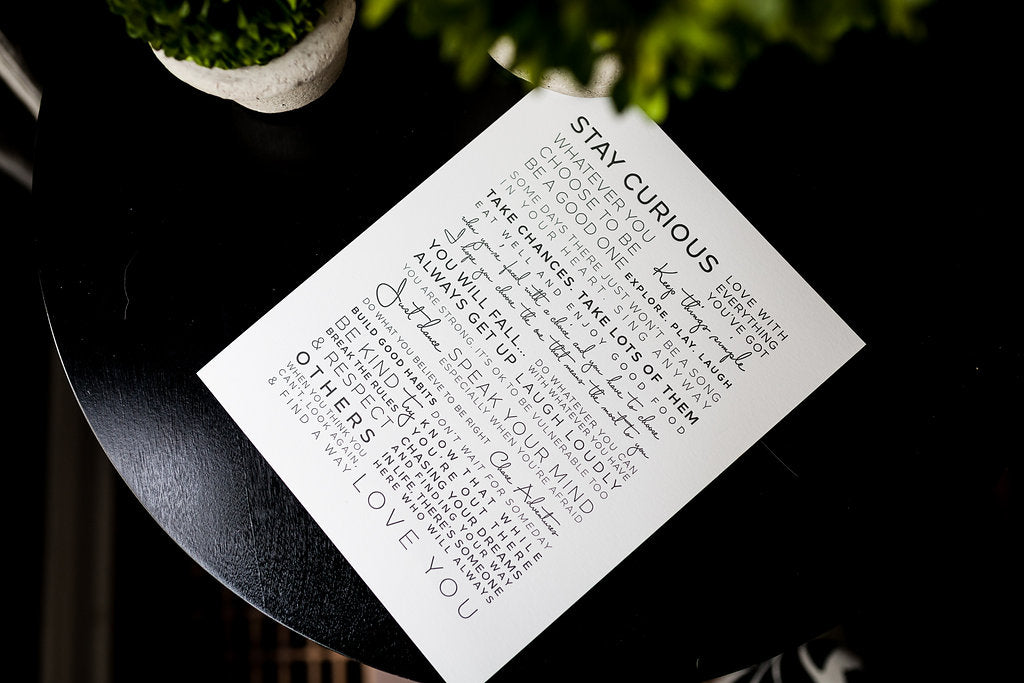 STAY CURIOUS
WHATEVER YOU
CHOOSE TO BE
BE A GOOD ONE
LOVE WITH
EVERYTHING
YOU'VE GOT
Keep things simple
SOME DAYS THERE JUST WON'T BE A SONG
IN YOUR HEART. SING ANYWAY
EXPLORE, PLAY, LAUGH
TAKE CHANCES. TAKE LOTS OF THEM
EAT WELL AND ENJOY GOOD FOOD
when you're faced with a choice and you have to choose
I hope you choose the one that means the most to you
YOU WILL FALL...
ALWAYS GET UP
DO WHATEVER YOU CAN
WITH WHATEVER YOU HAVE
LAUGH LOUDLY
YOU ARE STRONG, IT'S OK TO BE VULNERABLE TOO
ESPECIALLY WHEN YOU'RE AFRAID
Just dance
SPEAK YOUR MIND
DO WHAT YOU BELIEVE TO BE RIGHT
BUILD GOOD HABITS
BREAK THE RULES
DON'T WAIT FOR SOMEDAY
Chase Adventures
BE KIND
try
& RESPECT
OTHERS
KNOW THAT WHILE
YOU'RE OUT THERE
CHASING YOUR DREAMS
AND FINDING YOUR WAY
IN LIFE, THERE'S SOMEONE
HERE WHO WILL ALWAYS
WHEN YOU THINK YOU
CAN'T, LOOK AGAIN,
& FIND A WAY
LOVE YOU